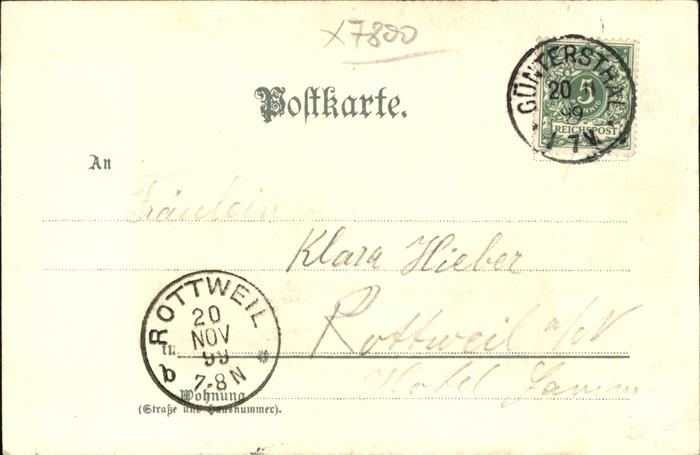 x7800
Postkarte.
GÜNTERSTHAL
20 11
99
7 V.
5
PFENNIG
REICHSPOST
An
Fräulein
Klara Hieber
ROTTWEIL
20
NOV
99
7-8N
b
in
Rottweil a/N
Hotel Lamm
Wohnung
(Straße und Hausnummer).